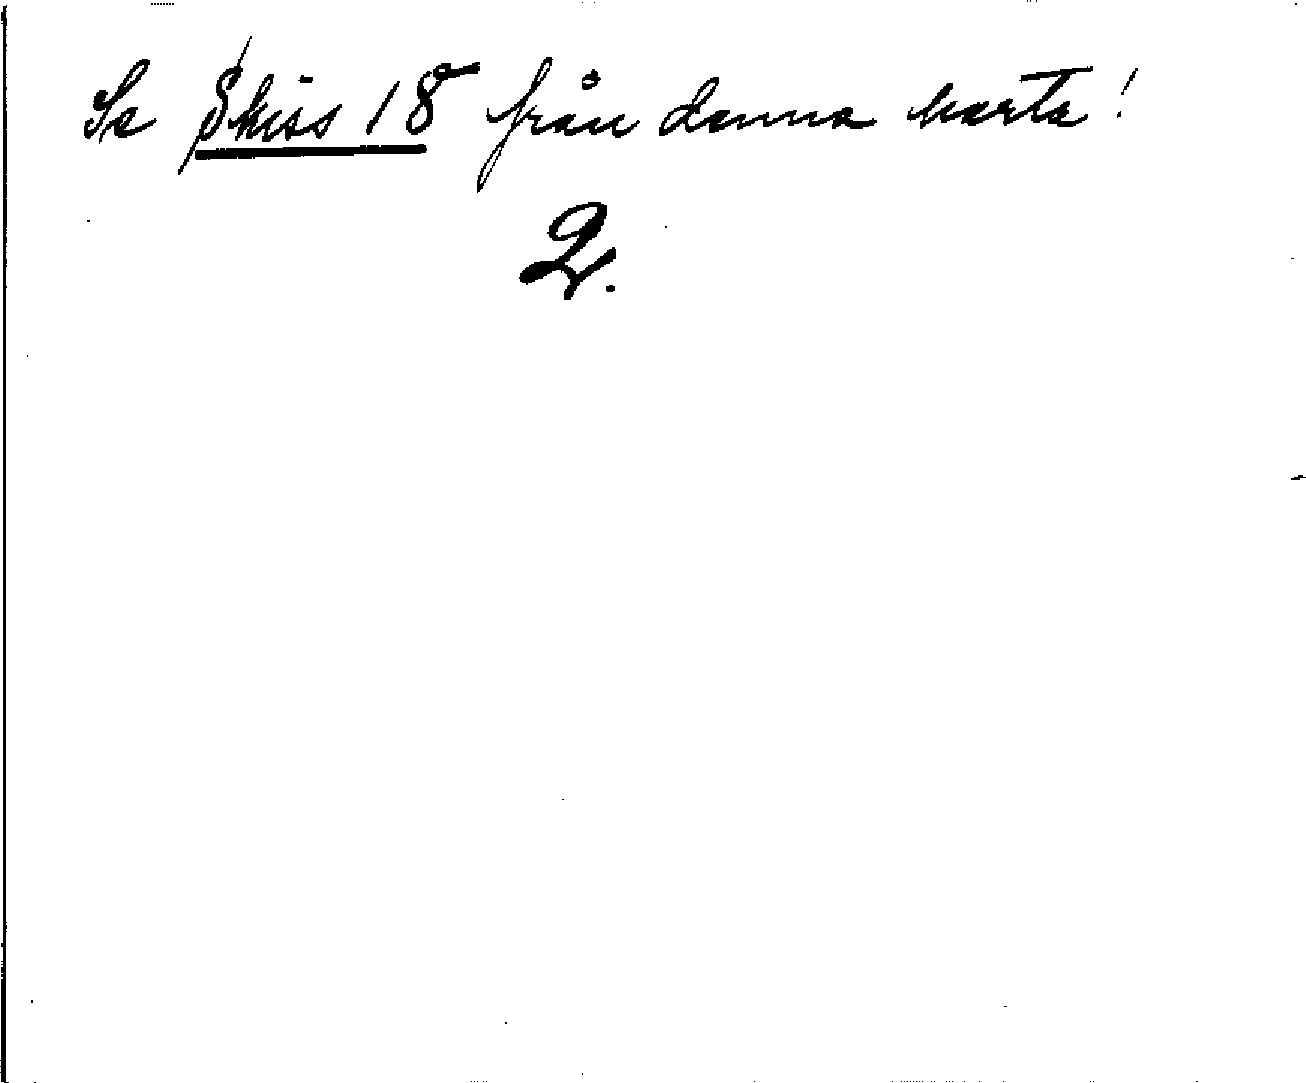 Se Skiss 18 från denna karta!
2.